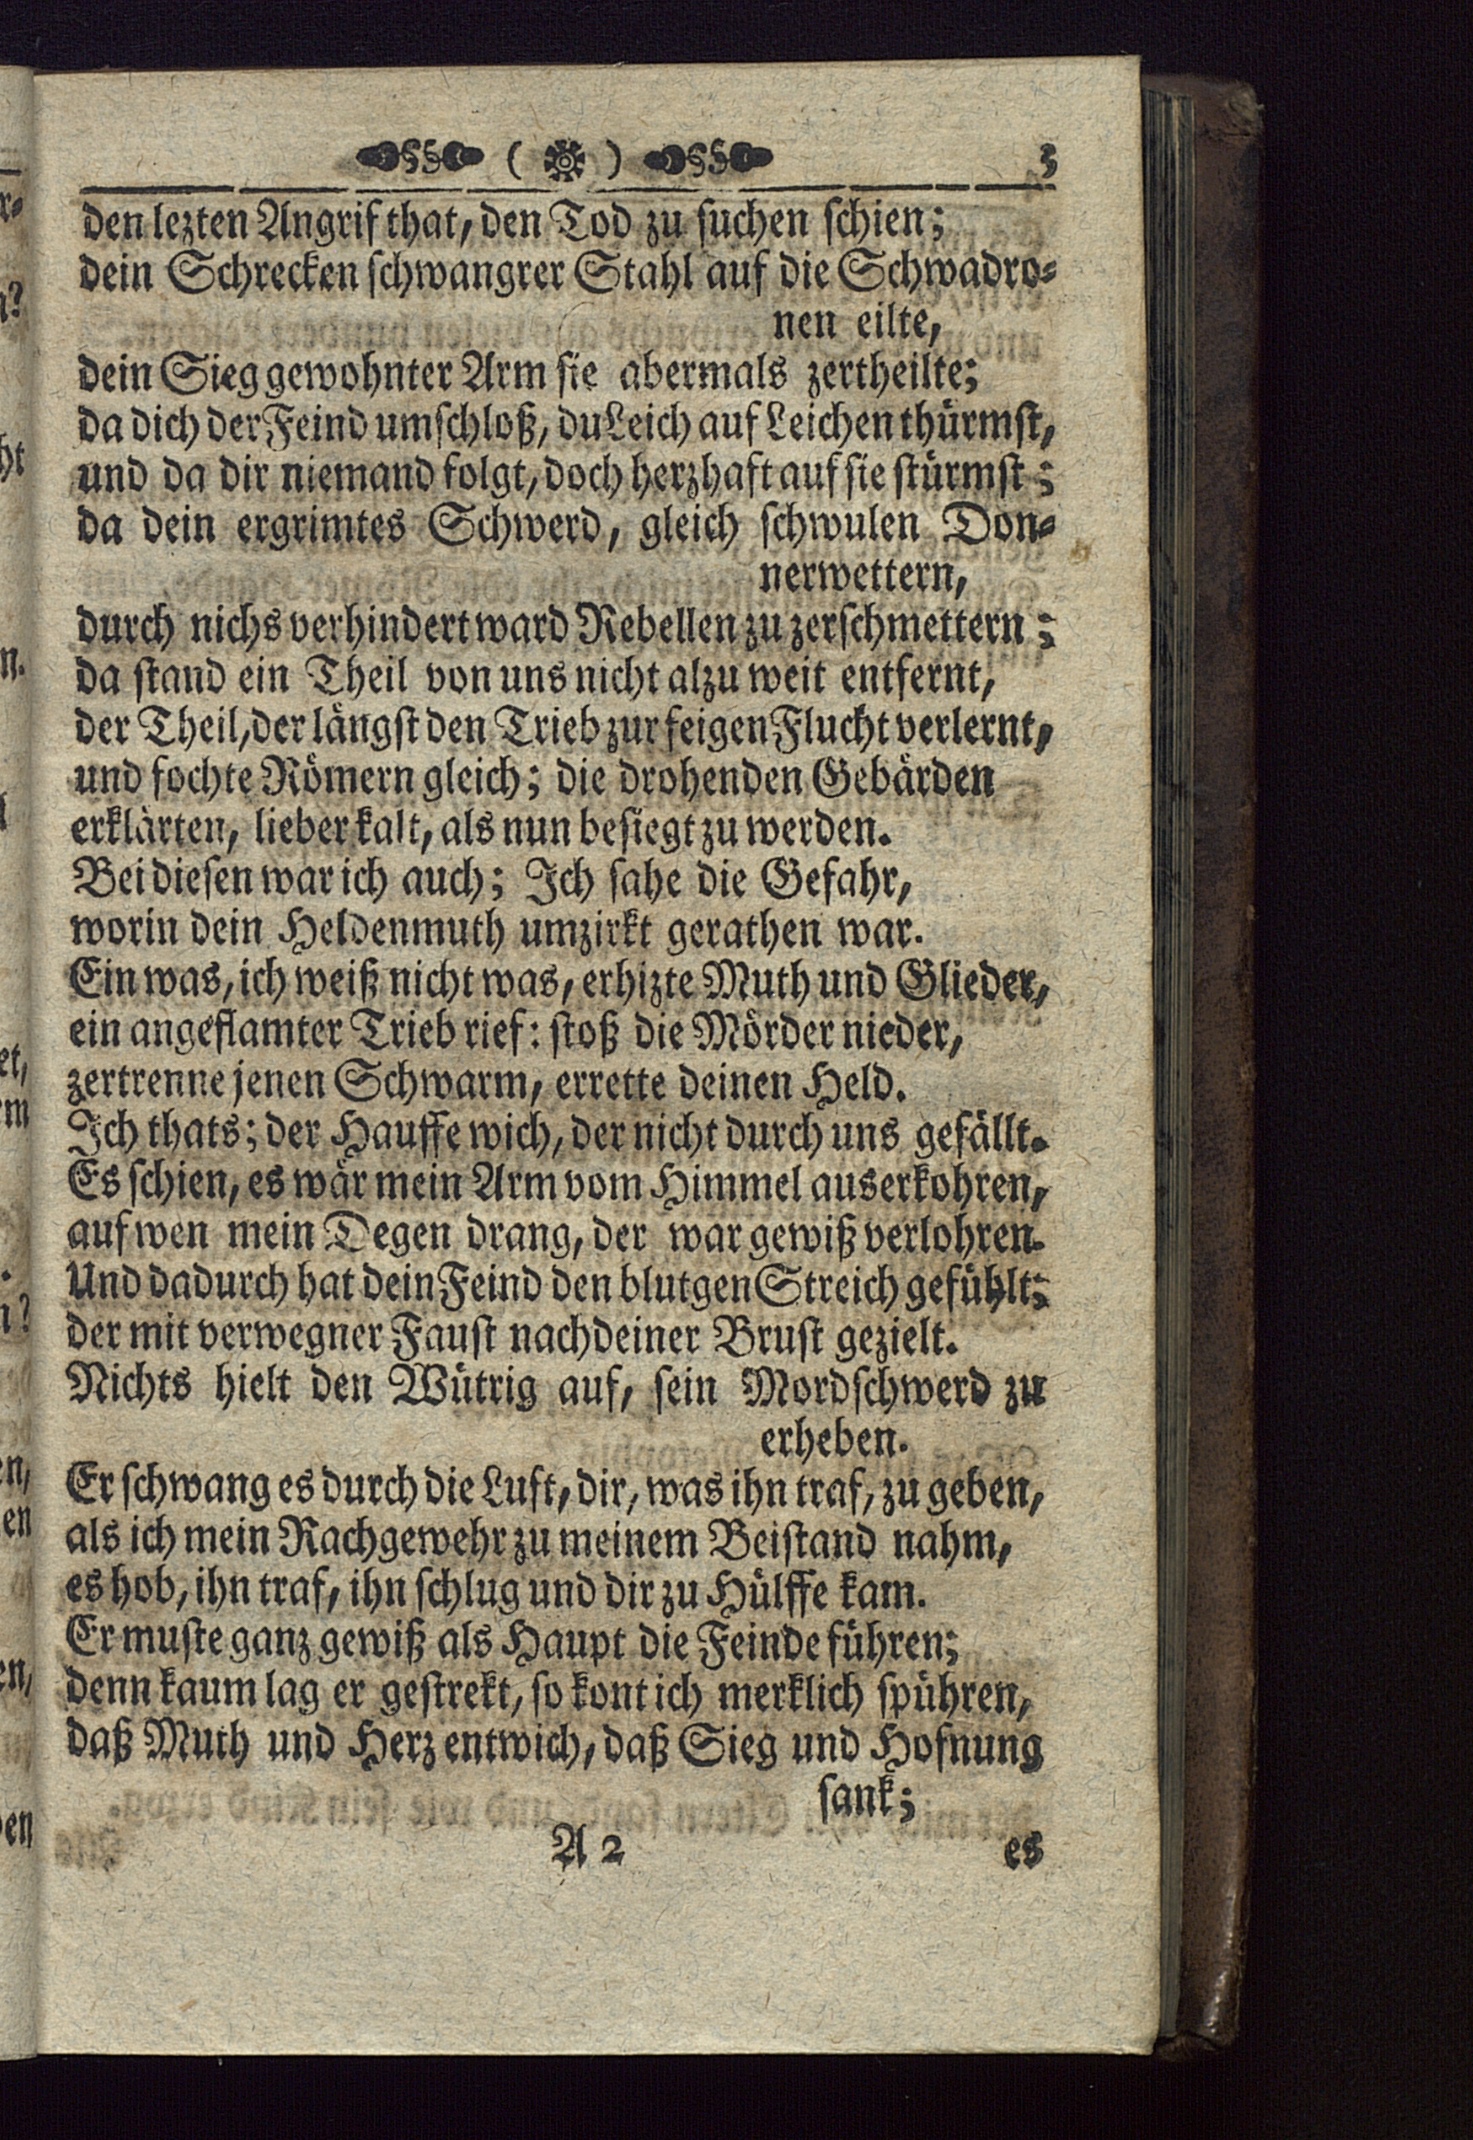 ( ) 3
den lezten Angrif that, den Tod zu suchen schien;
dein Schrecken schwangrer Stahl auf die Schwadro-
nen eilte,
dein Sieg gewohnter Arm sie abermals zertheilte;
da dich der Feind umschloß, du Leich auf Leichen thürmst,
und da dir niemand folgt, doch herzhaft auf sie stürmst;
da dein ergrimtes Schwerd, gleich schwulen Don-
nerwettern,
durch nichs verhindert ward Rebellen zu zerschmettern;
da stand ein Theil von uns nicht alzu weit entfernt,
der Theil, der längst den Trieb zur feigen Flucht verlernt,
und fochte Römern gleich; die drohenden Gebärden
erklärten, lieber kalt, als nun besiegt zu werden.
Bei diesen war ich auch; Ich sahe die Gefahr,
worin dein Heldenmuth umzirkt gerathen war.
Ein was, ich weiß nicht was, erhizte Muth und Glieder,
ein angeflamter Trieb rief: stoß die Mörder nieder,
zertrenne jenen Schwarm, errette deinen Held.
Ich thats; der Hauffe wich, der nicht durch uns gefällt.
Es schien, es wär mein Arm vom Himmel auserkohren,
auf wen mein Degen drang, der war gewiß verlohren.
Und dadurch hat dein Feind den blutgen Streich gefühlt;
der mit verwegner Faust nach deiner Brust gezielt.
Nichts hielt den Wütrig auf, sein Mordschwerd zu
erheben.
Er schwang es durch die Luft, dir, was ihn traf, zu geben,
als ich mein Rachgewehr zu meinem Beistand nahm,
es hob, ihn traf, ihn schlug und dir zu Hülffe kam.
Er muste ganz gewiß als Haupt die Feinde führen;
denn kaum lag er gestrekt, so kont ich merklich spühren,
daß Muth und Herz entwich, daß Sieg und Hofnung
sank;
A 2 es